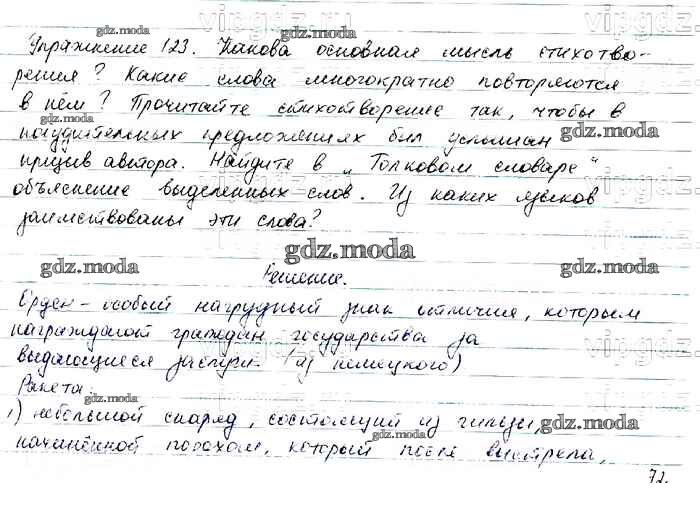 Упражнение 123. Какова основная мысль стихотво-
рения? Какие слова многократно повторяются
в нём? Прочитайте стихотворение так, чтобы в
побудительных предложениях был услышан
призыв автора. Найдите в „Толковом словаре"
объяснение выделенных слов. Из каких языков
заимствованы эти слова?
Решение.
Орден - особый нагрудный знак отличия, которым
награждают граждан государства за
выдающиеся заслуги. (из немецкого)
Ракета:
1) небольшой снаряд, состоящий из гильзы,
начинённой порохом, который после выстрела,
72.
gdz.moda
gdz.moda
gdz.moda
gdz.moda
gdz.moda
gdz.moda
gdz.moda
gdz.moda
gdz.moda
gdz.moda
gdz.moda
vipgdz.ru